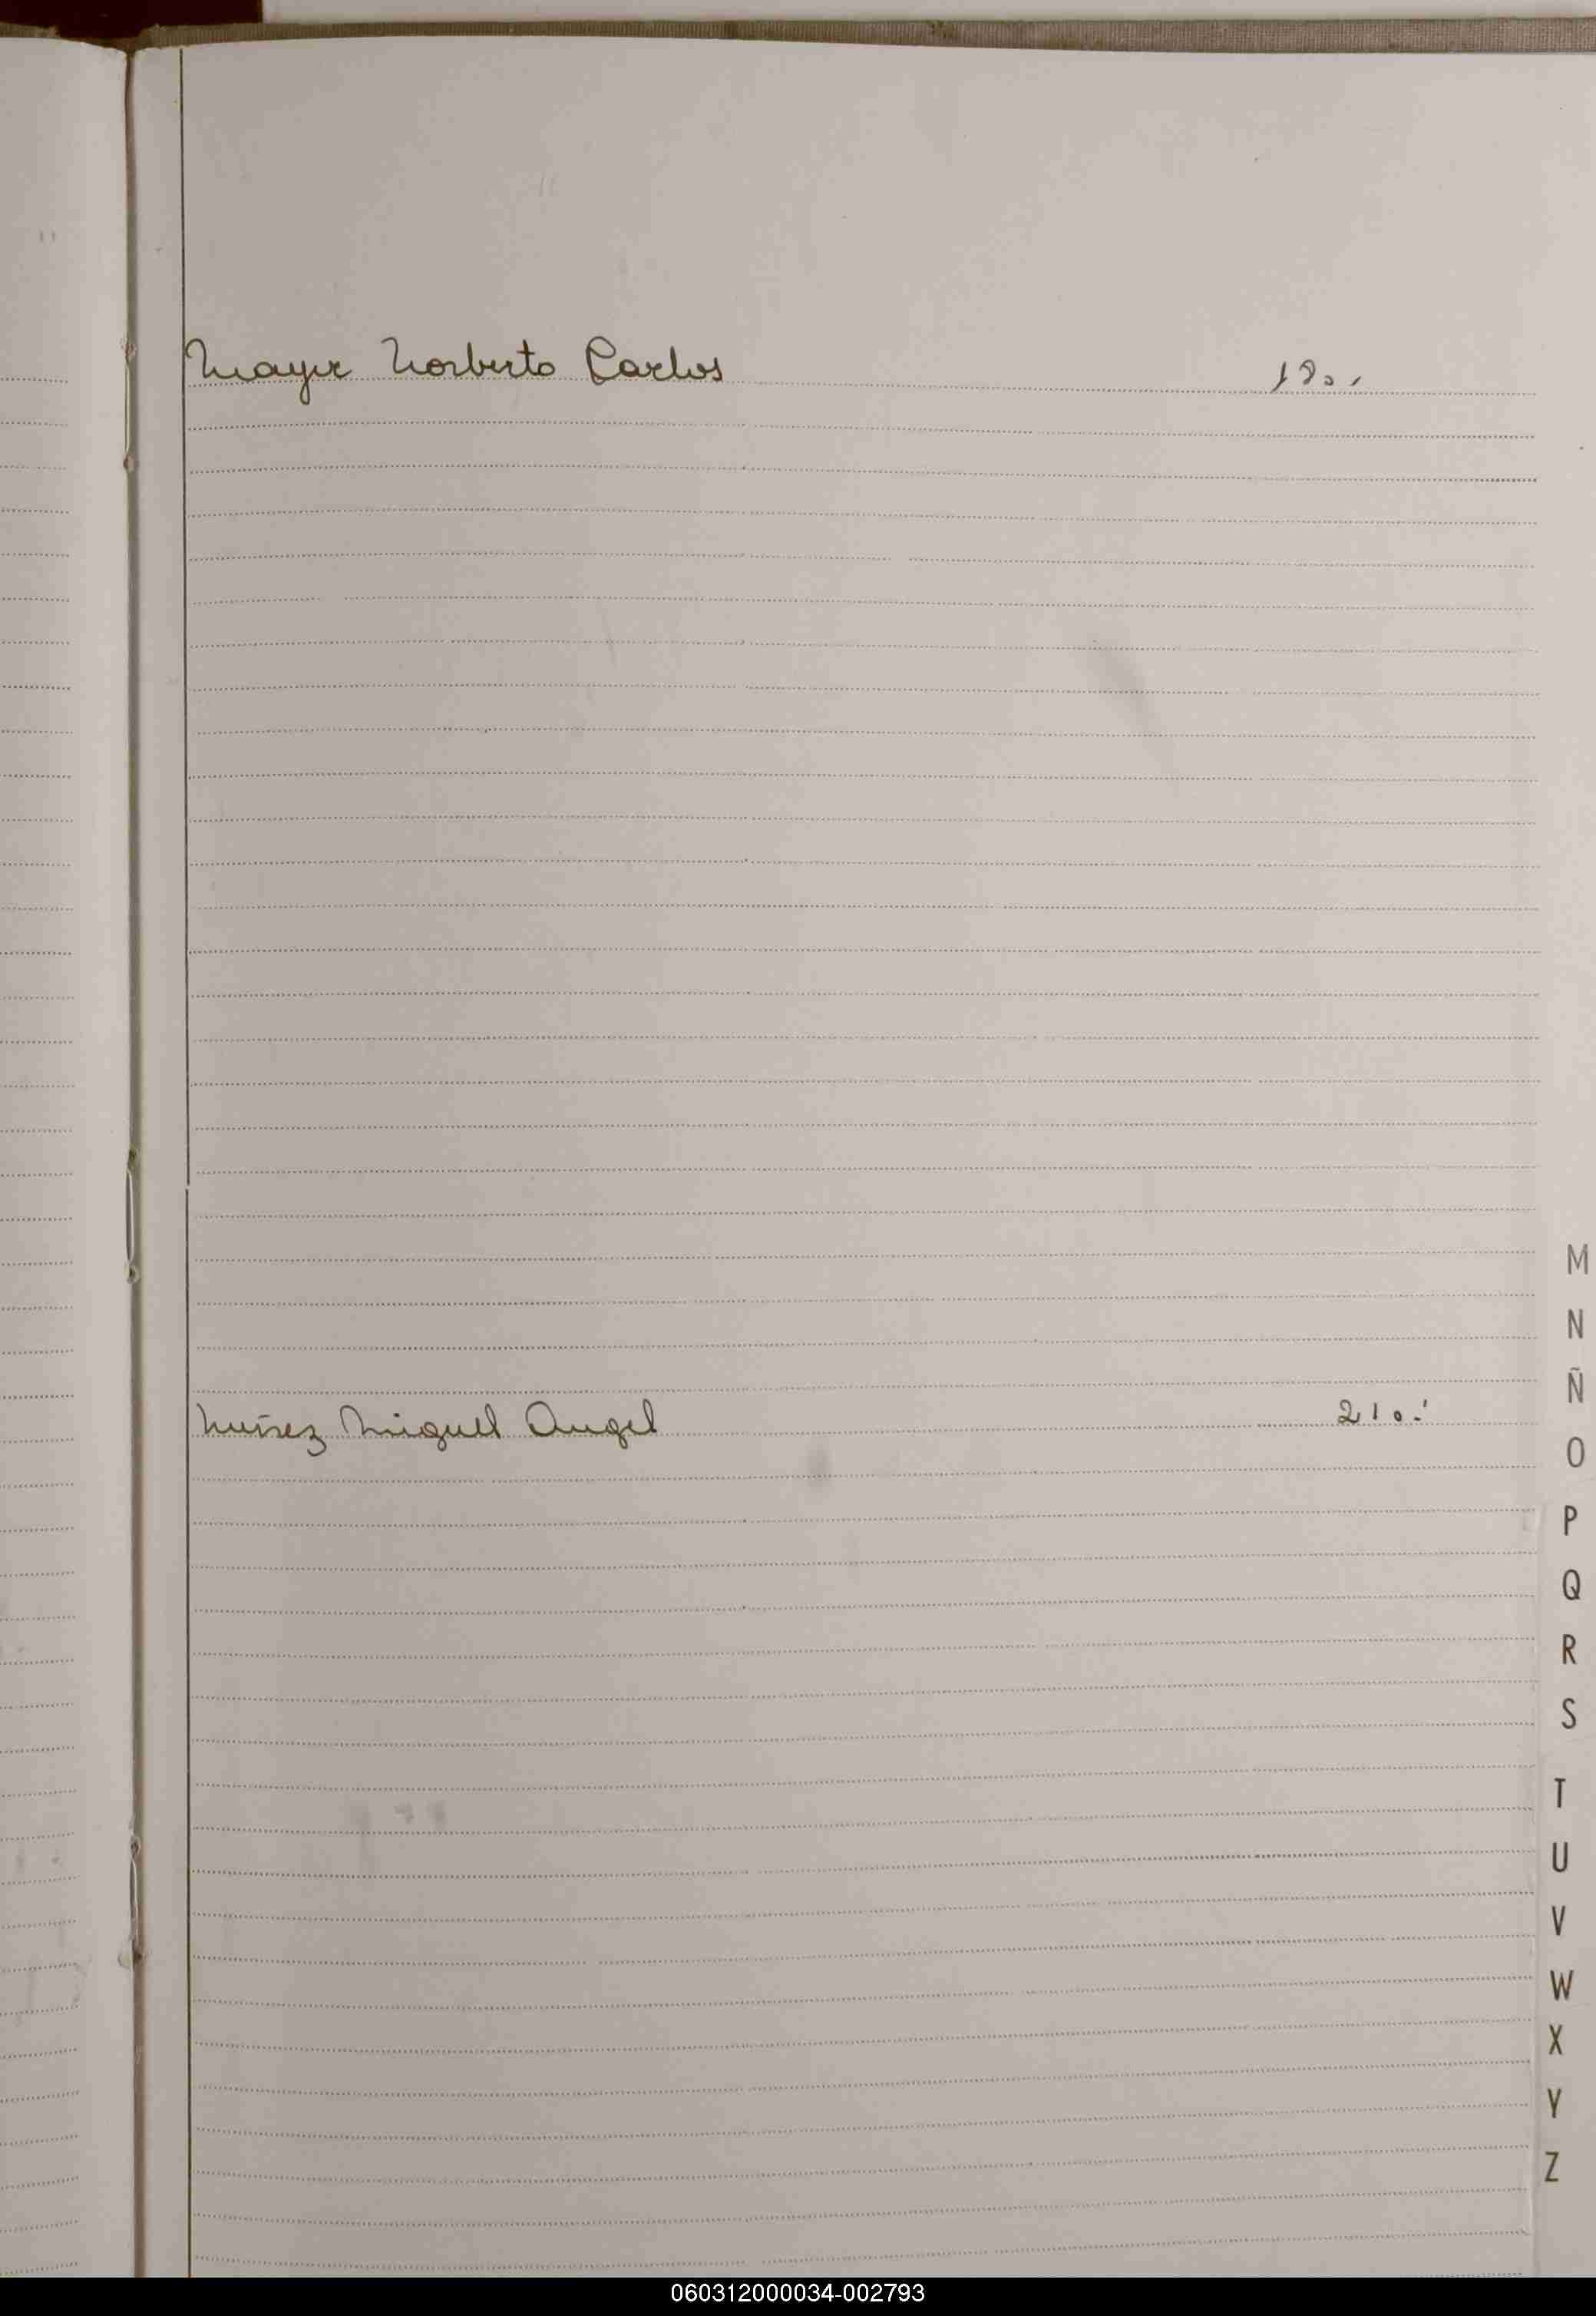 Mayer Norberto Carlos 180.
Nuñez Miguel Angel 210.
M
N
Ñ
O
P
Q
R
S
T
U
V
W
X
Y
Z
060312000034-002793